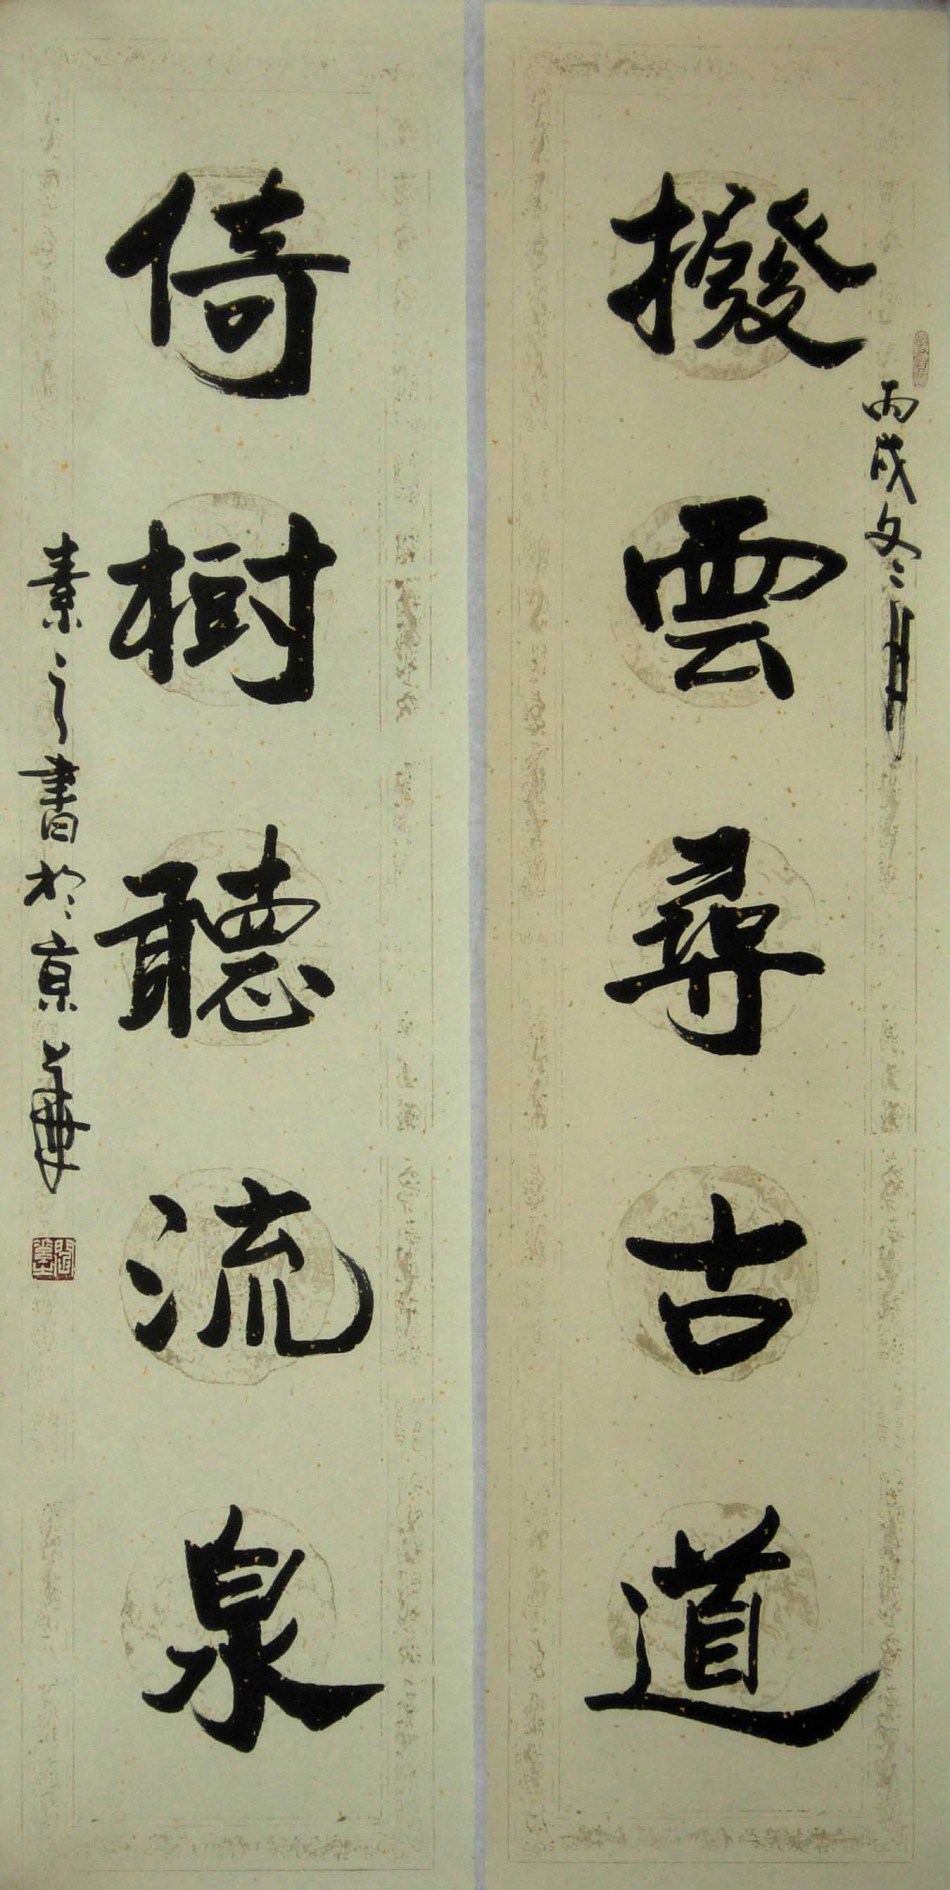 撥雲尋古道
丙戌冬月
倚樹聽流泉
素之書於京華